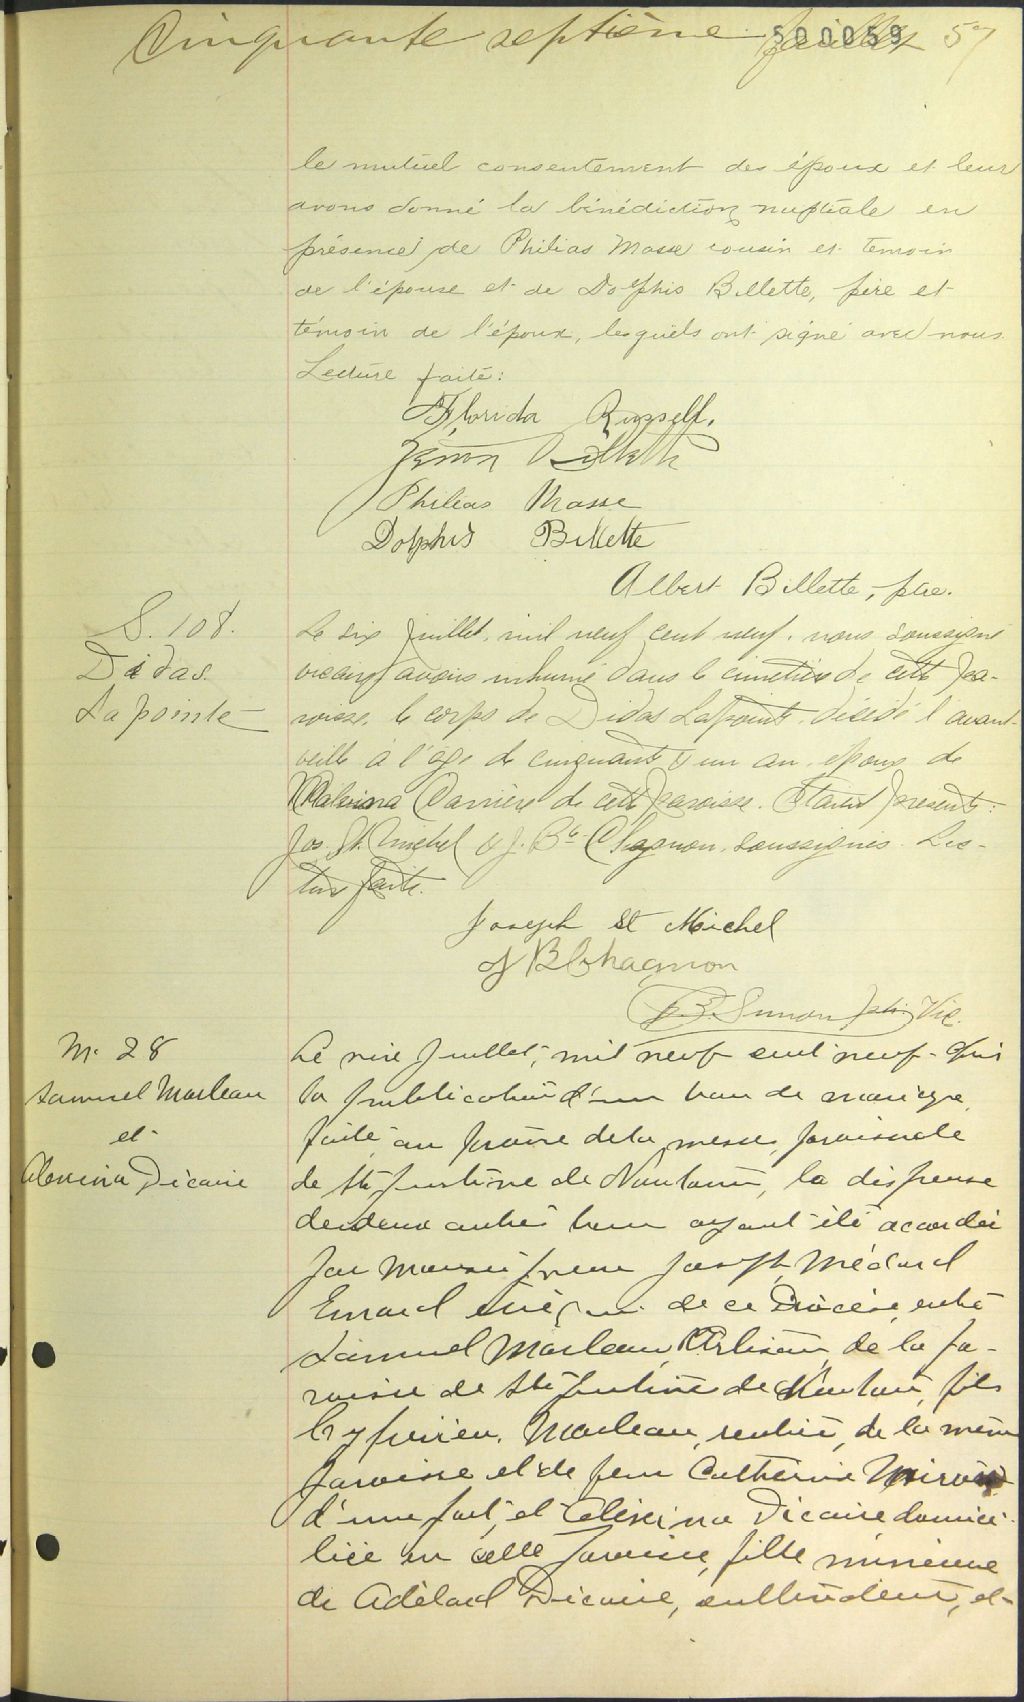 Cinquante septième feuillet 57
500059
le mutuel consentement des époux et leur
avons donné la bénédiction nuptiale en
présence de Philias Masse cousin et temoin
de l'épouse et de Dolphis Billette, père et
témoin de l'époux, lesquels ont signé avec nous.
Lecture faite:
Florida Russell.
Billette
Phileas Masse
Dolphis Billette
Albert Billette, ptre.
S. 108.
Didas
Lapointe
Le six Juillet, mil neuf cent neuf, nous soussigné
vicaire avons inhumé dans le cimetière de cette pa-
roisse, le corps de Didas Lapointe, décédé l'avant-
veille à l'âge de cinquante & un an, époux de
Malvina Carrière de cette paroisse. Etaient présents:
Jos. St. Michel & J. Bte Chagnon, soussignés. Lec-
ture faite.
Joseph St Michel
J B Chagnon
Simon ptre Vic.
M. 28
Samuel Marleau
et
Alexina Dicaire
Le Juillet, mil neuf cent neuf, après
la publication d'un ban de mariage
faite au prône de la messe paroissiale
de Ste Justine de Newton, la dispense
de deux autres bans ayant été accordée
par Monseigneur Joseph Médard
Emard évêque de ce Diocèse, entre
Samuel Marleau, Artisan, de la pa-
roisse de Ste Justine de Newton, fils
Cyprien Marleau, rentier, de la même
paroisse et de feue Catherine
d'une part, et Alexina Dicaire domici-
liée en cette paroisse, fille mineure
de Adélard Dicaire, cultivateur, et